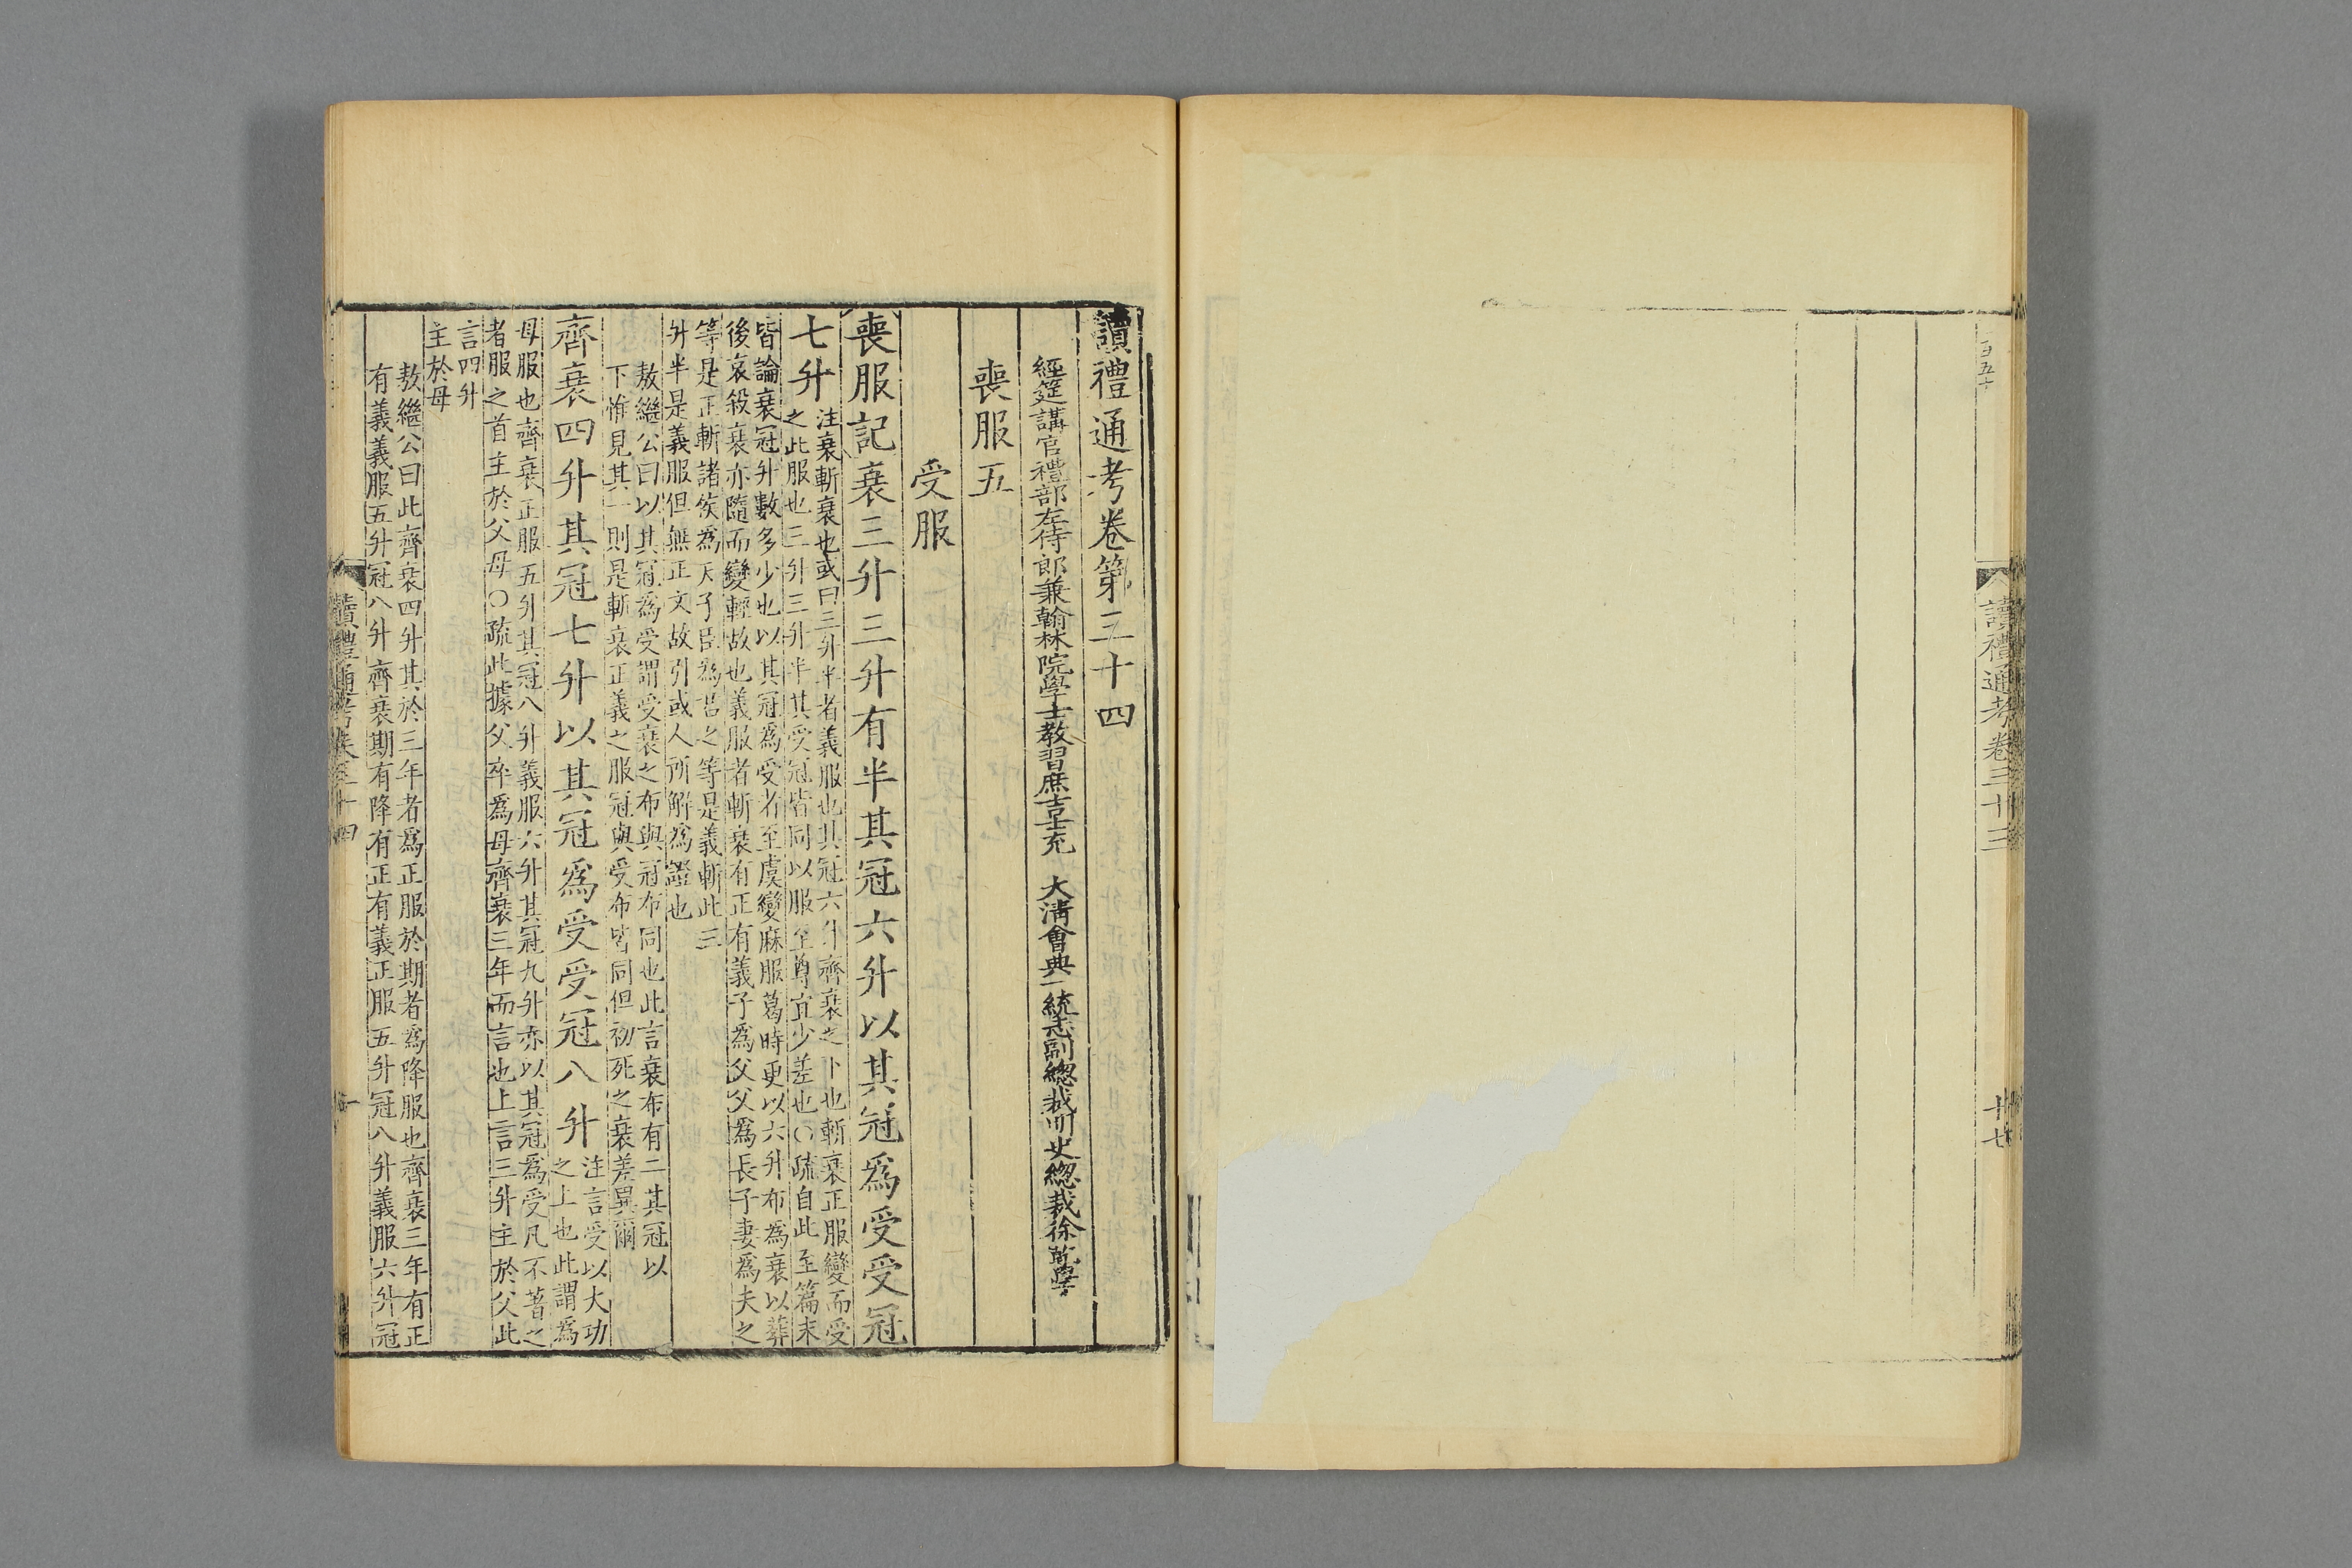 百五十
讀禮通考卷三十三
十七
讀禮通考卷第三十四
經筵講官禮部左侍郎兼翰林院學士教習庶吉士充　大清會典一統志副總裁明史總裁徐乾學
喪服五
受服
喪服記衰三升三升有半其冠六升以其冠爲受受冠
七升
注衰斬衰也或曰三升半者義服也其冠六升齊衰之下也斬衰正服變而受
之此服也三升三升半其受冠皆同以服至尊宜少差也○疏自此至篇末
皆論衰冠升數多少也以其冠爲受者至虞變麻服葛時更以六升布爲衰以葬
後哀殺衰亦隨而變輕故也義服者斬衰有正有義子爲父父爲長子妻爲夫之
等是正斬諸侯爲天子臣爲君之等是義斬此三
升半是義服但無正文故引或人所解爲證也
敖繼公曰以其冠爲受謂受衰之布與冠布同也此言衰布有二其冠以
下惟見其一則是斬衰正義之服冠與受布皆同但初死之衰差異爾
齊衰四升其冠七升以其冠爲受受冠八升
注言受以大功
之上也此謂爲
母服也齊衰正服五升其冠八升義服六升其冠九升亦以其冠爲受凡不著之
者服之首主於父母○疏此據父卒爲母齊衰三年而言也上言三升主於父此
言四升
主於母
敖繼公曰此齊衰四升其於三年者爲正服於期者爲降服也齊衰三年有正
有義義服五升冠八升齊衰期有降有正有義正服五升冠八升義服六升冠
讀禮通考卷三十四
一